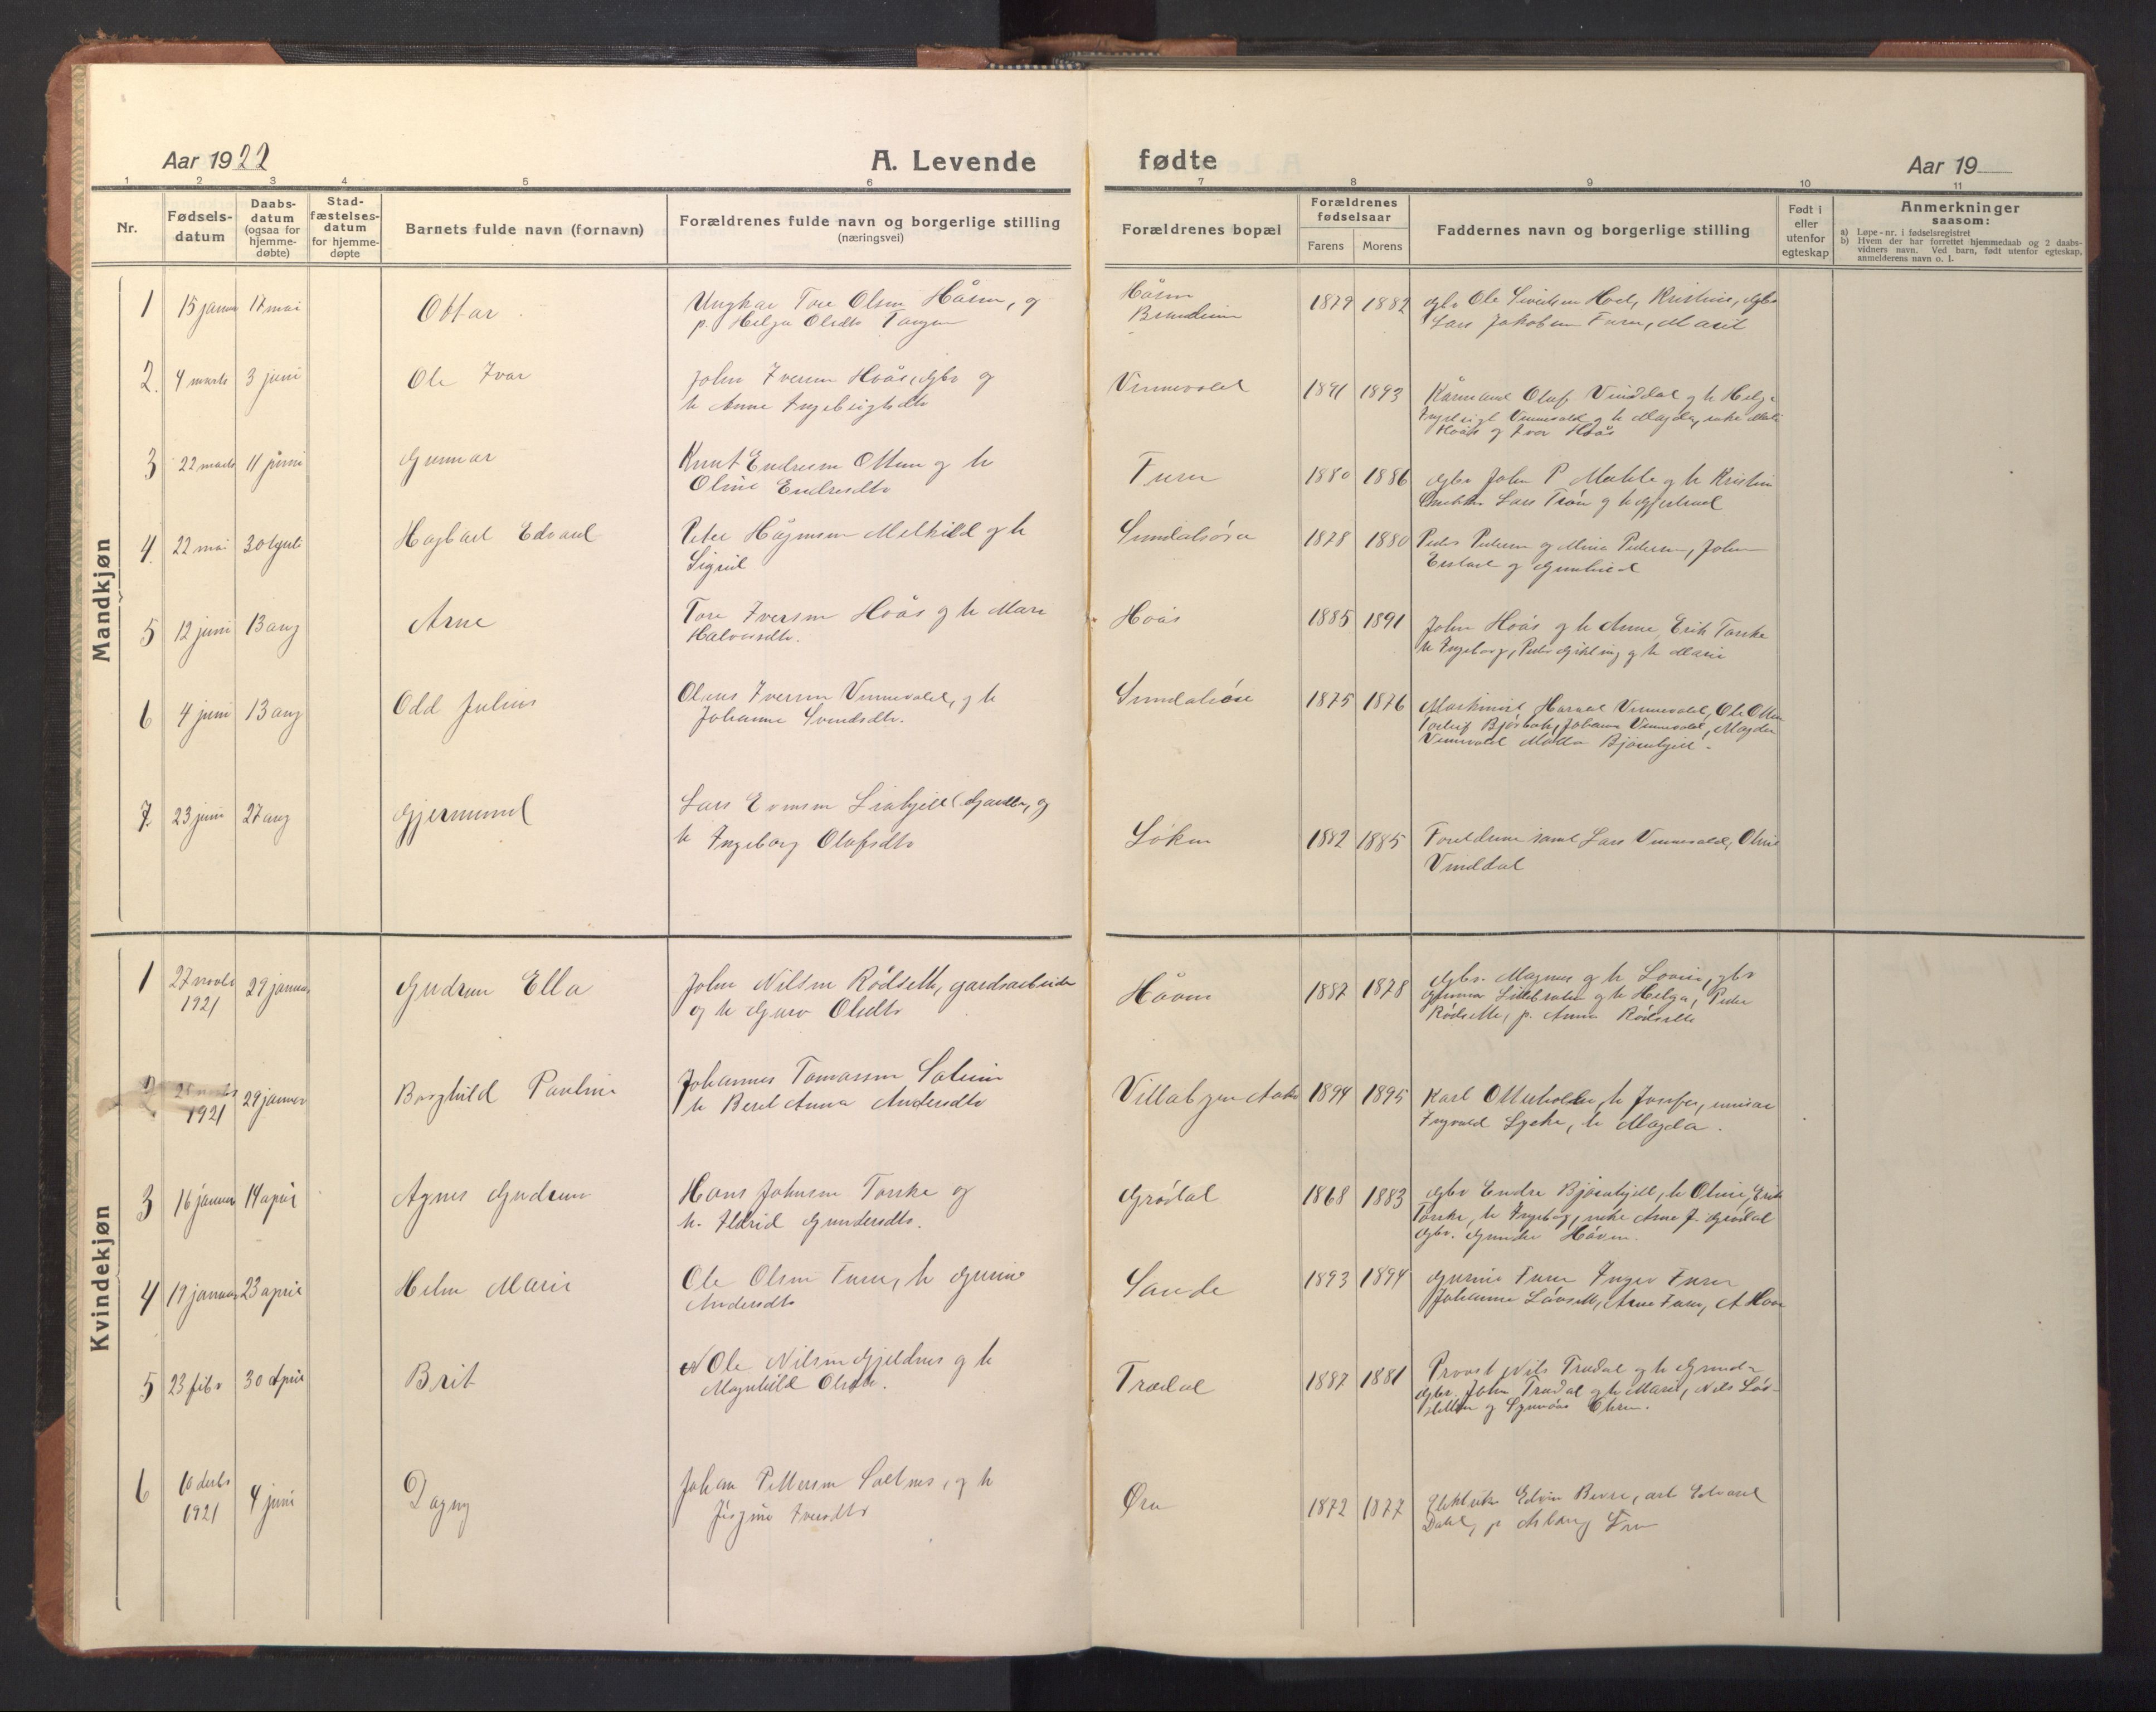 Aar 1922
A. Levende
fødte
Aar 19
1 2 3 4 5 6 7 8 9 10 11
Nr.
Fødsels-
datum
Daabs-
datum
(ogsaa for
hjemme-
døbte)
Stad-
fæstelses-
datum
for hjemme-
døpte
Barnets fulde navn (fornavn)
Forældrenes fulde navn og borgerlige stilling
(næringsvei)
Forældrenes bopæl
Forældrenes
fødselsaar
Farens Morens
Faddernes navn og borgerlige stilling
Født i
eller
utenfor
egteskap
Anmerkninger
saasom:
a) Løpe-nr. i fødselsregistret
b) Hvem der har forrettet hjemmedaab og 2 daabs-
vidners navn. Ved barn, født utenfor egteskap,
anmelderens navn o. l.
Mandkjøn
1 15 januar 17 mai Ottar Ungkar Tore Olsen Håsen, og
p. Helga Olsdtr
Håsen
1879 1882 gbr Ole Hoel, Kristine, gbr
Lars Jakobsen Furu, Marit
2. 4 marts 3 juni Ole Ivar John Iversen Hoås, gbr og
h Anne Ingebrigtsdtr
Vinnevold 1891 1893 Olaf Vinddal og h Helga
Ingebrigt Vinnevold og h Magda, enke
Hoås og Iver Hoås
3 22 marts 11 juni Gunnar Knut Endresen Ottem og h
Oline Endresdtr
Furu 1880 1886 gbr John P h Kristine
Lars Trøn og h Gjertrud
4. 22 mai 30 juli Hagbart Edvard Peter Melkild og h
Sigrid
Sundalsøra 1878 1880 Peder Pedersen og Mina Pedersen, Johan
og Gunhild
5 12 juni 13 aug Arne Tore Iversen Hoås og h Mari
Halvorsdtr.
Hoås 1885 1891 John Hoås og h Anne, Erik Torske
h Ingeborg, Peder Gikling og h Marie
6 4 juni 13 aug Odd Julius Iversen Vinnevold, og h
Johanne Svendsdtr.
Sundalsøra 1875 1876 Maskinist Harald Vinnevold, Ole Ottem
Johanna Vinnevold, Magda
Vinnevold
7. 23 juni 27 aug Gjermund Lars Evensen og
h Ingeborg Olafsdtr
Løken 1882 1885 Foreldrene samt Lars Vinnevold, Oline
Vinddal
Kvindekjøn
1 27 novbr
1921 29 januar Gudrun Ella John Nilsen Rødseth, gardsarbeider
og h Guro Olsdtr
Håven 1887 1878 gbr. Magnus og h Lovise, gbr
Gunnar og h Helga, Peder
Rødseth, p. Anna Rødseth
2
1921 29 januar Borghild Pauline Johannes Tomassen
h Beret Anna Andersdtr
1894 1895 Karl h Josefa,
Ingvald Lyche, h Magda.
3 16 januar 14 april Agnes Gudrun Hans Johnsen Torske og
h. Ildrid Gundersdtr.
Grødal 1868 1883 gbr Endre h Oline, Erik
Torske, h Ingeborg, enke Arne J. Grødal
gbr. Gunder Håven.
4 19 januar 23 april Marie Ole Olsen Furu, h Gurine
Andersdtr
Sande 1893 1894 Gurine Furu Inger Furu
Johanna Løvseth, Arne Furu,
5 23 febr 30 april Brit Ole Nilsen Gjeldnes og h
Magnhild Olsdtr.
Trædal 1887 1881 Provst Nils Trædal og h
gbr. John Trædal og h Marit, Nils Løv-
6 10 decbr
1921 4 juni Dagny Johan Pettersen og h
Iversdtr
Øra 1872 1877 Edvin arb Edvard
Dahl, p